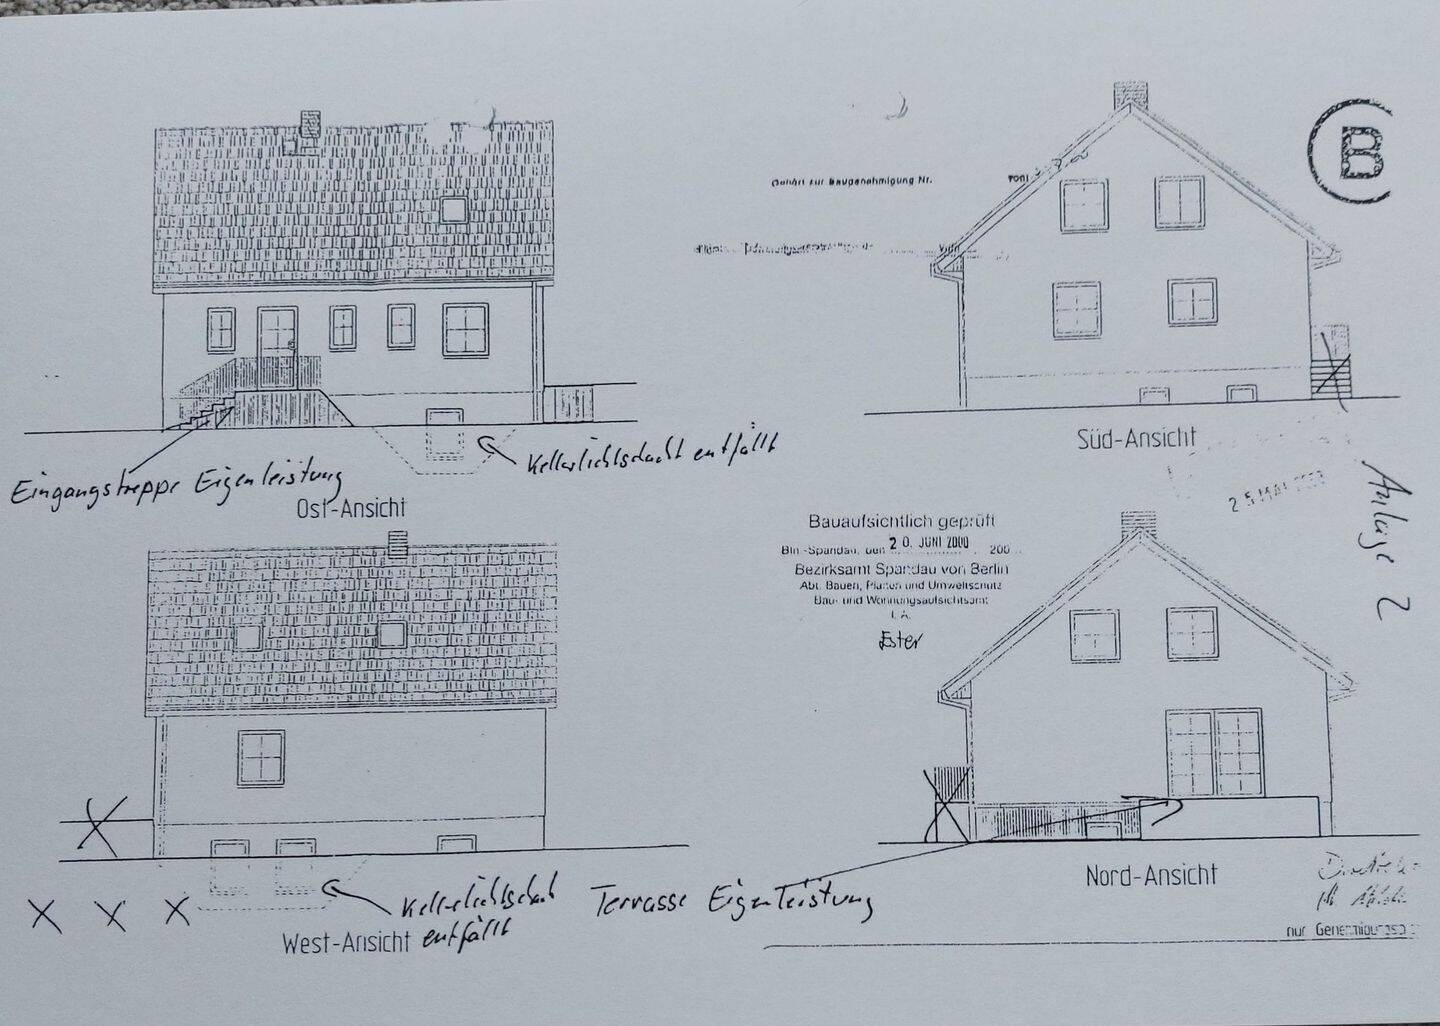 B
Gehört zur Baugenehmigung Nr. vom
vom
Süd-Ansicht
Kellerlichtschacht entfällt
Eingangstreppe Eigenleistung
Ost-Ansicht
25. MAI
Anlage 2
Bauaufsichtlich geprüft
Bln.-Spandau, den 20. JUNI 2000 200
Bezirksamt Spandau von Berlin
Abt. Bauen, Planen und Umweltschutz
Bau- und Wohnungsaufsichtsamt
I. A.
Ester
Nord-Ansicht
Kellerlichtschacht
entfällt
Terrasse Eigenleistung
X X X
West-Ansicht
nur